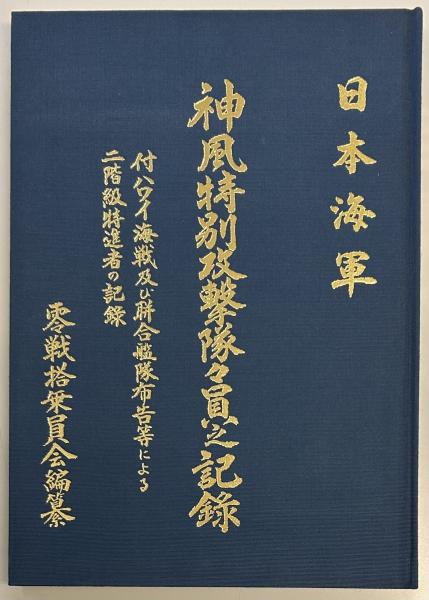 日本海軍
神風特別攻撃隊々員之記録
付ハワイ海戦及び併合艦隊布告等による
二階級特進者の記録
零戦搭乗員会編纂